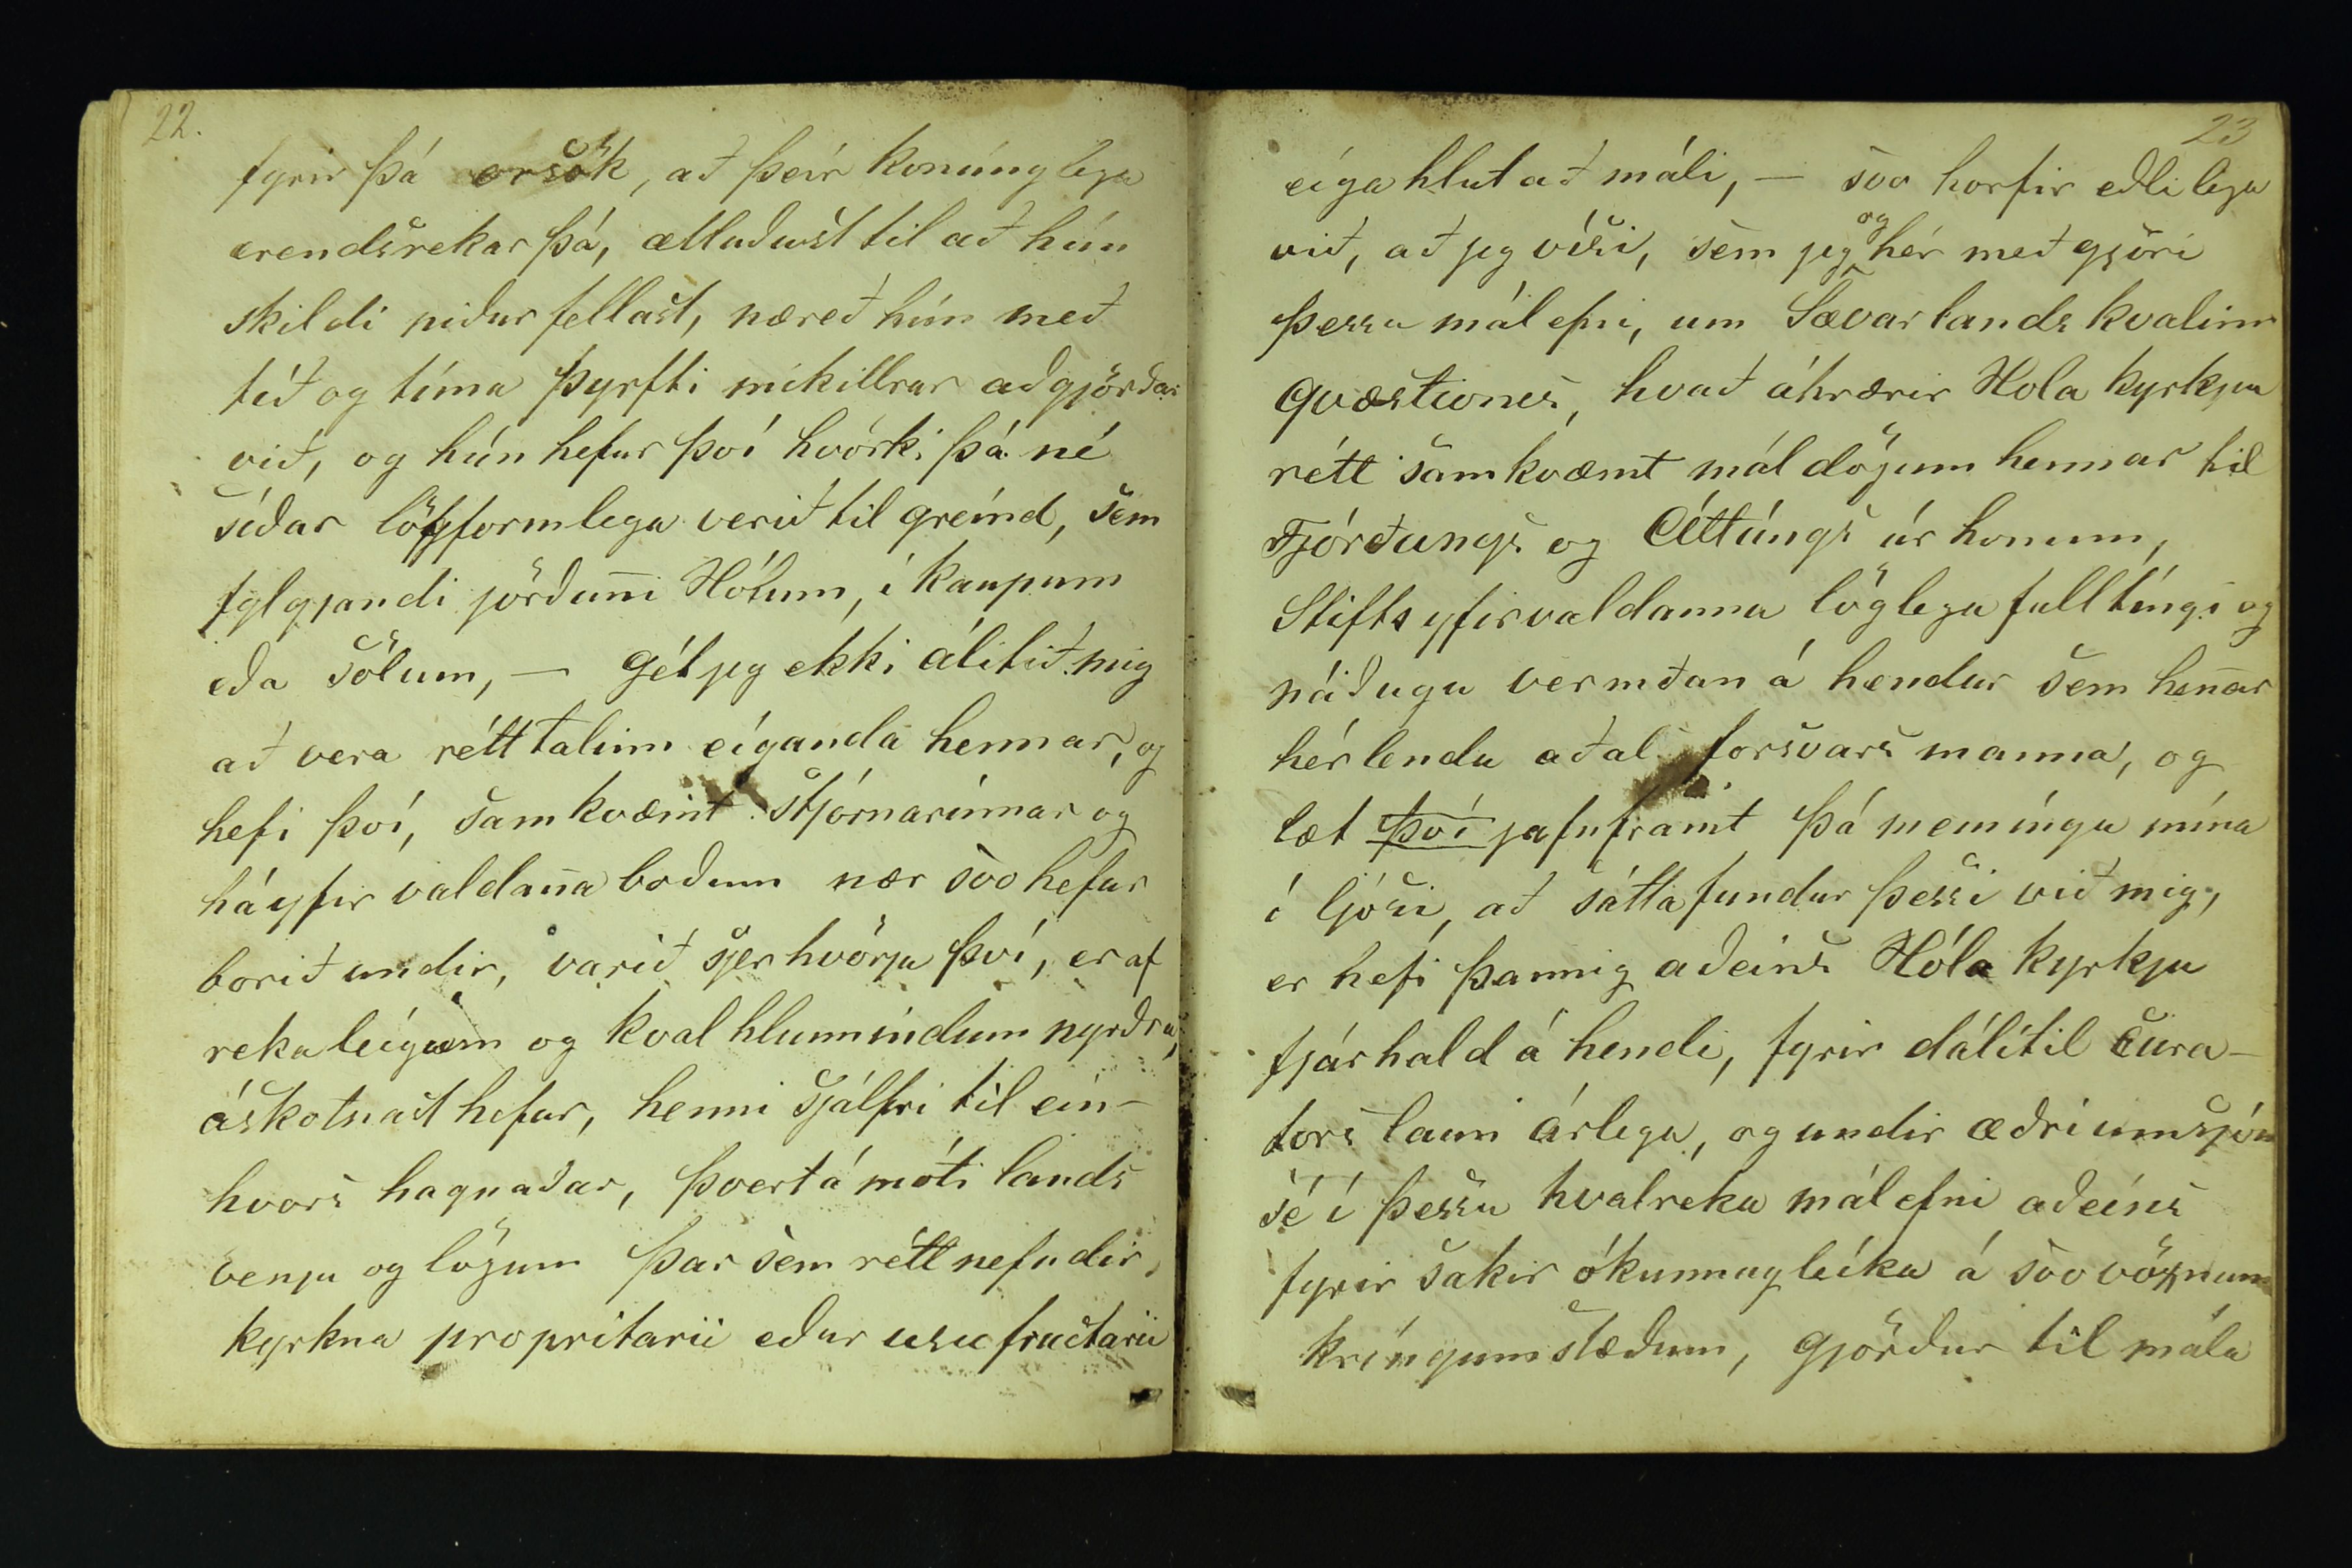 22.
fyrir þá orsök, að þeír konúnglegu
erendsrekar þá, ætluðust til að hún
skildi niður fellast, næreð hún með
tíð og tíma þyrfti mikillrar aðgjörðar
við, og hún hefur því hvörki þá né
síðar lögformlega verið til greínd, sem
fylgjandi jörðuni Hólum, í kaupum
eða sölum, — gét jeg ekki álitið mig
að vera rétt talinn eíganda hennar, og
hefi því, samkvæmt stjórnarinnar og
háyfirvaldana boðum nær svo hefur
borið undir, varið sjerhvörju því, er af
rekaleígum og kval hlunnindum nyrðra,
áskotnast hefur, henni sjálfri til eín-
hvors hagnaðar, þvert á móti lands
venju og lögum þar sem rétt nefndir
kyrkna propritarii eður usufructarii
23
eíga hlut að máli, — svo horfir eðlilega
við, að jeg vísi, sem jeg og hér með gjöri
þessu málefni, um Sævarlands kvalinn
qvæstiones, hvað áhrærir Hola kyrkju
rétt samkvæmt máldögum hennar til
Fjórðungs og Áttúngs úr honum,
Stiftsyfirvaldanna löglega fulltíngi og
náðugu vermðan á hendur sem henar
hérlendu aðal forsvarsmanna, og
læt því jafnframt þá meiníngu mína
í ljósi, að sáttafundur þessi við mig,
er hefi þannig aðeins Hóla kyrkju
fjárhald á hendi, fyrir dálítil Cura-
tors laun árlega, og undir æðri umsjón
sé í þessu hvalreka málefni aðeíns
fyrir sakir ókunnugleíka á svo vöxnum
kríngumstæðum, gjörður til mála